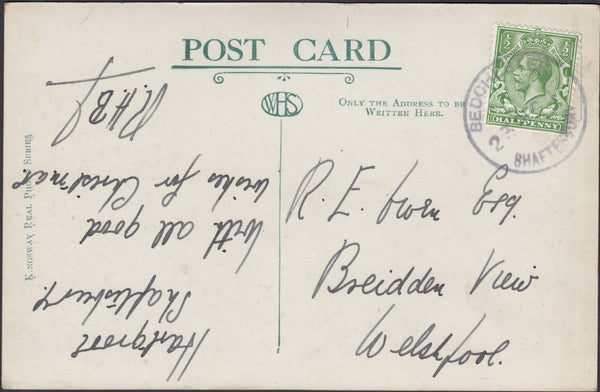 POST CARD
WHS
ONLY THE ADDRESS TO BE
WRITTEN HERE.
KINGSWAY REAL PHOTO SERIES
HALFPENNY
½
½
BEDCH
SHAFTESBURY
Hartgrove
Shaftesbury
With all good
wishes for Christmas
R.H.B.
R. E. Owen Esq.
Breidden View
Welshpool.